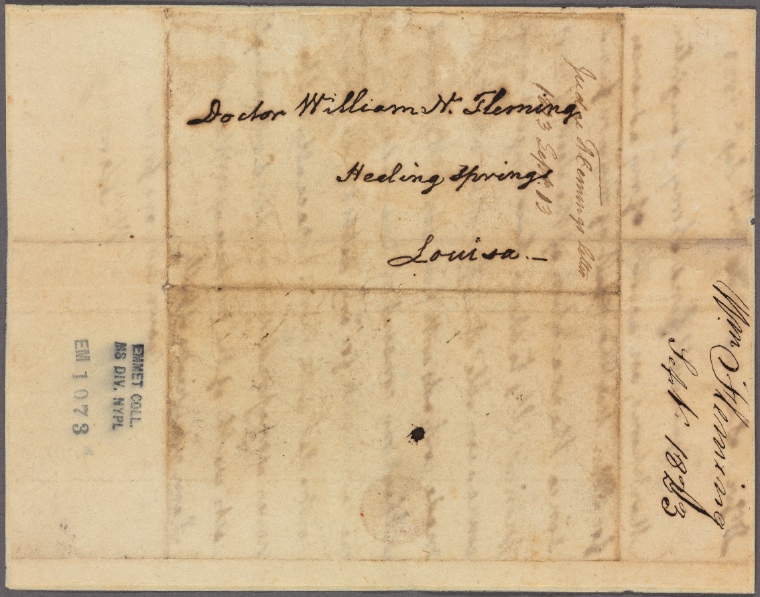 Doctor William N. Fleming
Healing Springs
Louisa. —
Judge Flemings letter
Sept. 13
Wm Fleming
Sept. 1823
EMMET COLL.
MS DIV. NYPL
EM 1073